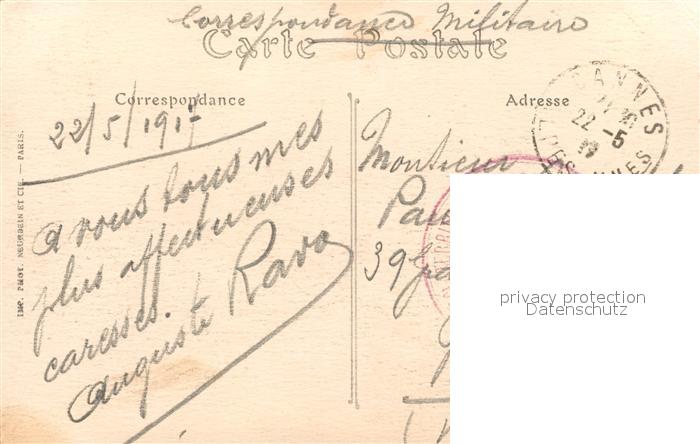 Correspondance Militaire
Carte Postale
Correspondance
Adresse
22/5/1915
a vous tous mes
plus affectueuses
caresses.
Auguste Ravo
Monsieur
39
CANNES
22 -5
IMP. PHOT. NEURDEIN ET CIE. — PARIS.
privacy protection
Datenschutz